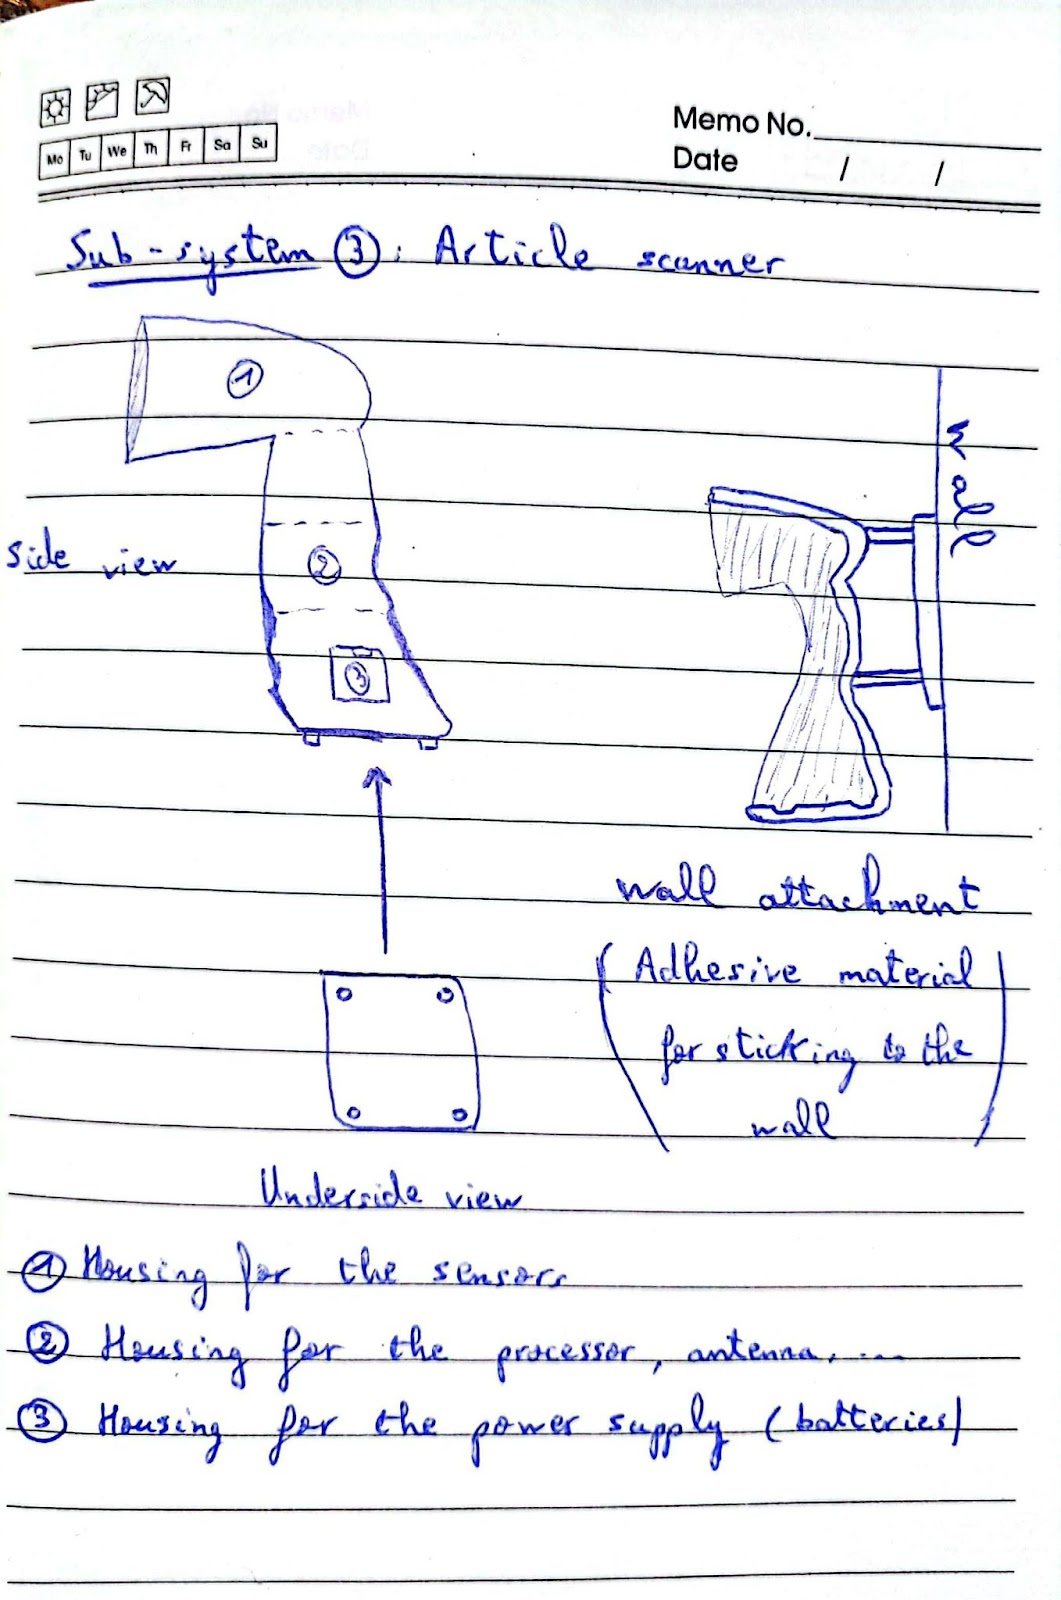 Memo No.
Mo Tu We Th Fr Sa Su
Date / /
Sub-system ③: Article scanner
①
wall
side view
②
③
wall attachment
(Adhesive material
for sticking to the
wall)
Underside view
① Housing for the sensors
② Housing for the processor, antenna, ...
③ Housing for the power supply (batteries)